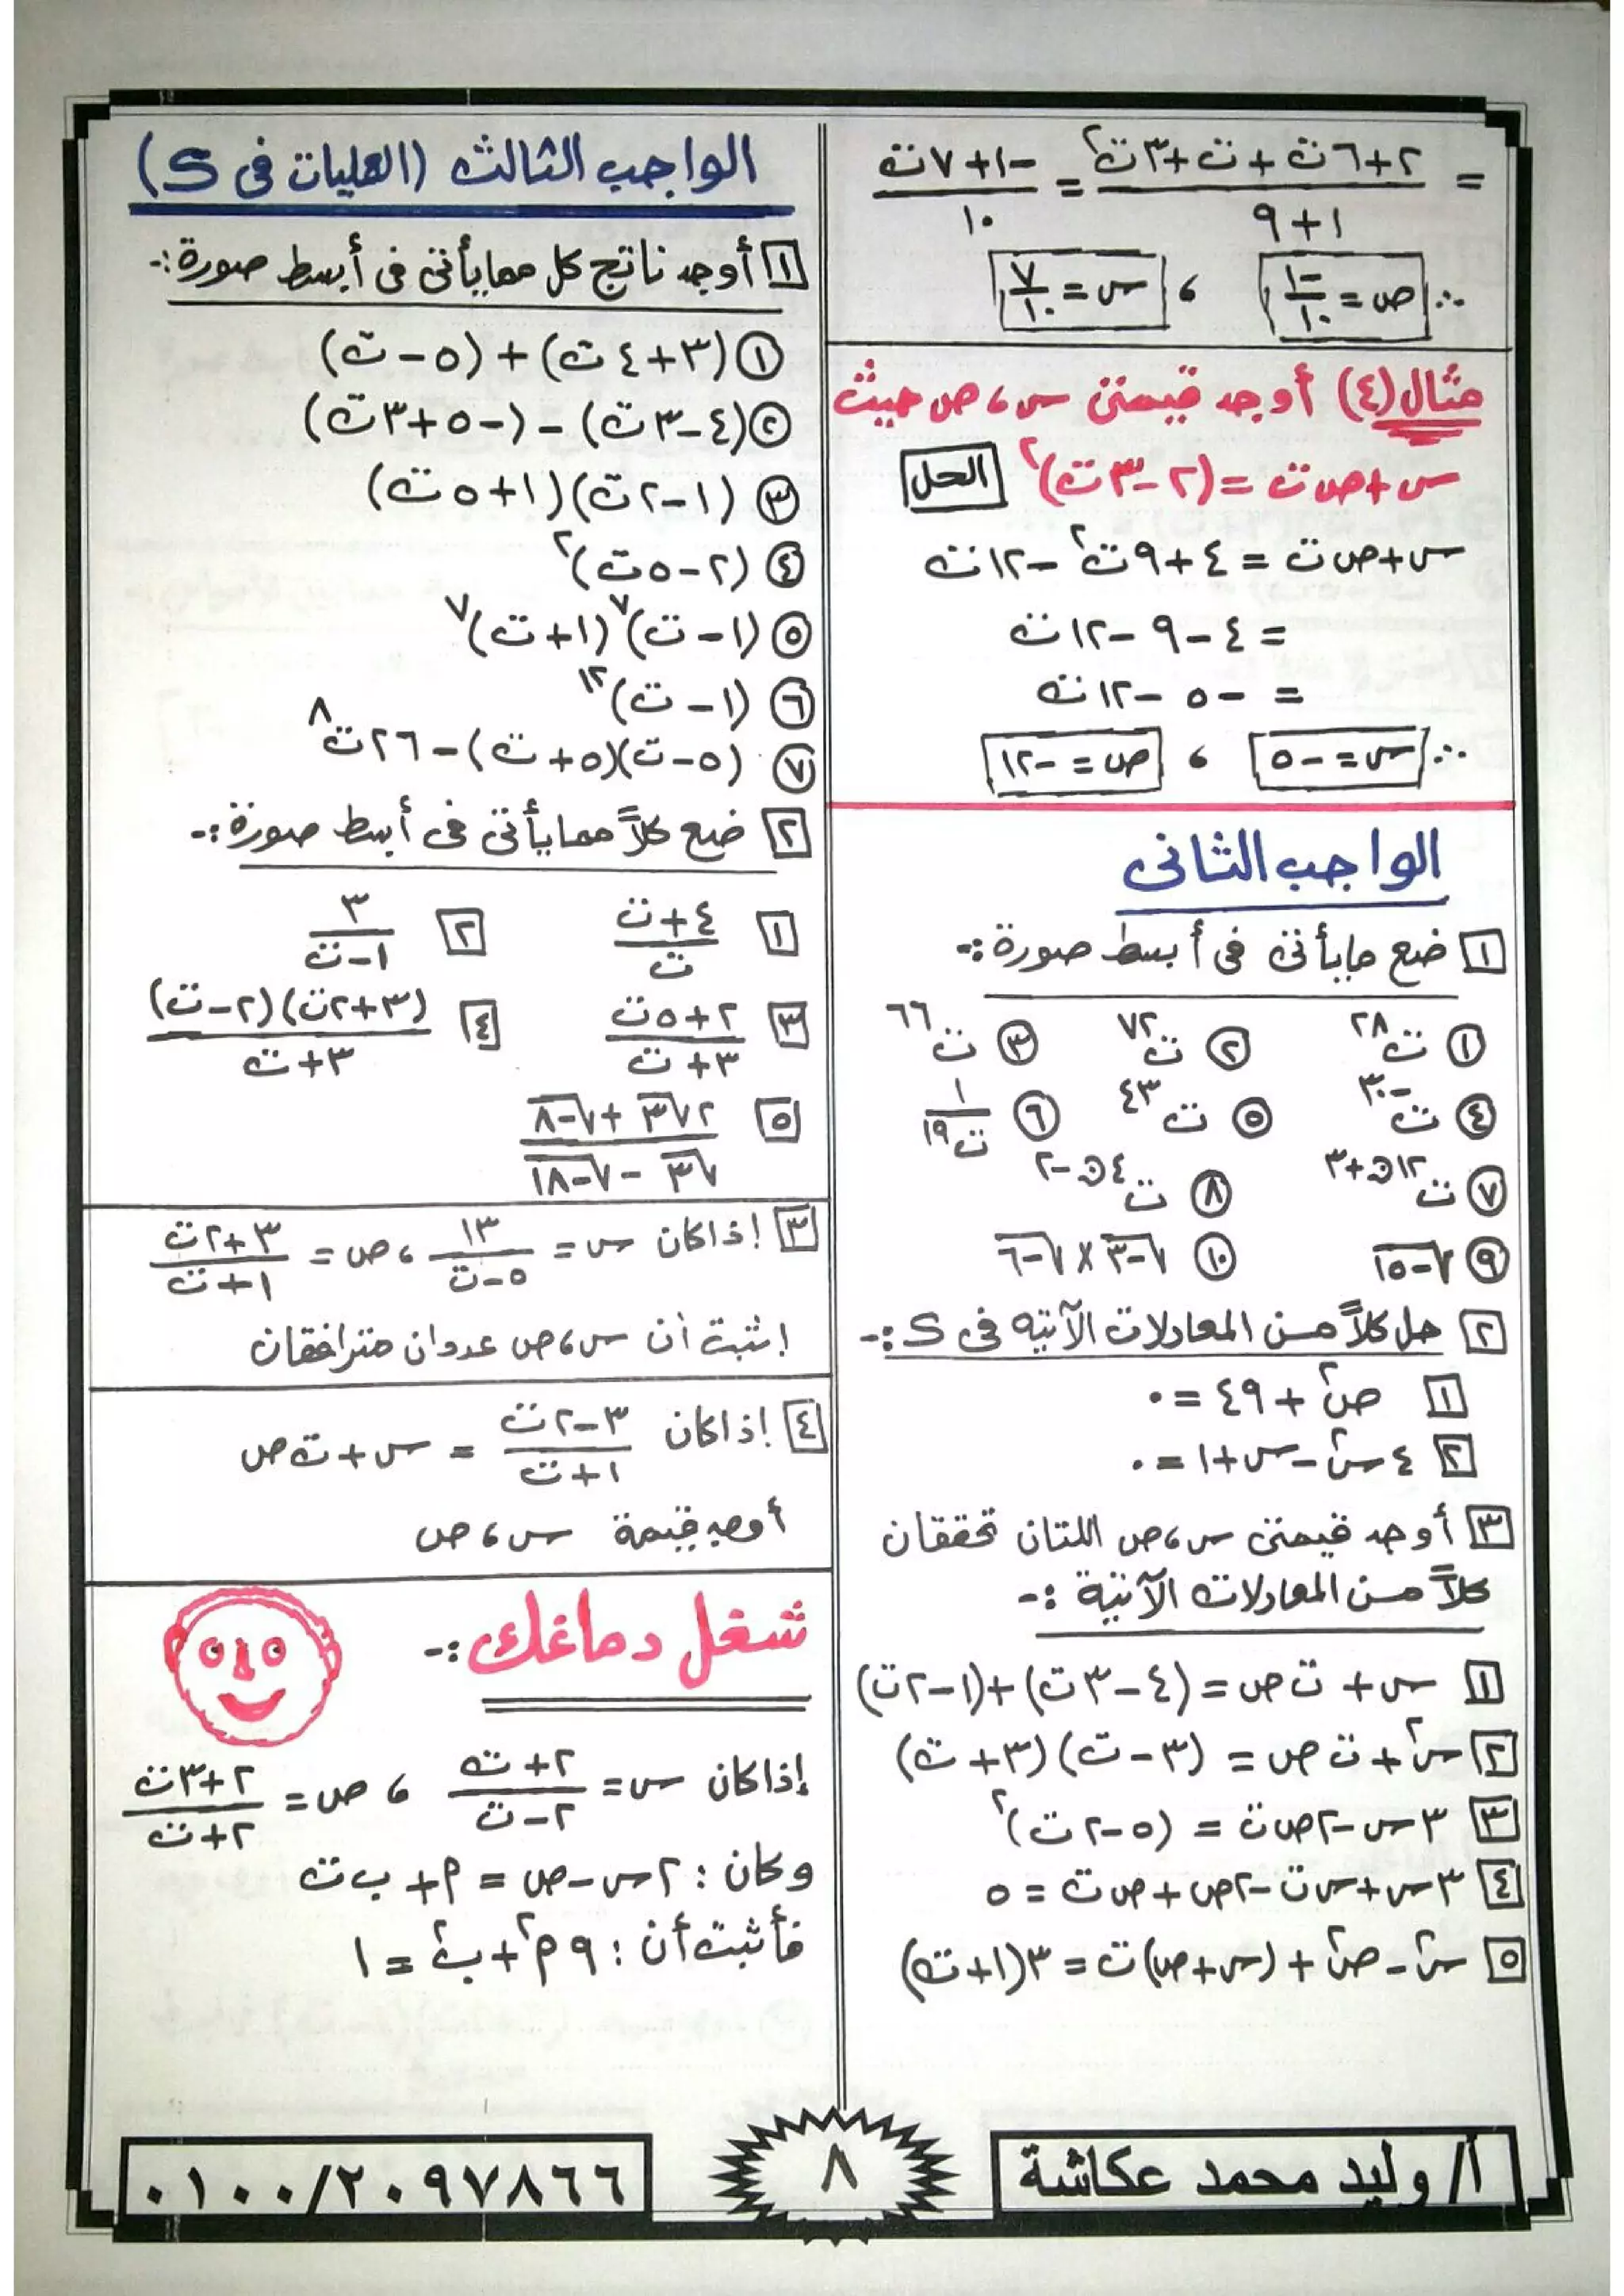 = (٢+٦ت+ت+٣ت٢)/(١+٩) = (-١+٧ت)/١٠
∴ ص = -١/١٠ ، س = ٧/١٠
مثال (٤) أوجد قيمتى س ، ص حيث
س + ص ت = (٢-٣ت)٢ الحل
س + ص ت = ٤ + ٩ت٢ - ١٢ت
= ٤ - ٩ - ١٢ت
= -٥ - ١٢ت
∴ س = -٥ ، ص = -١٢
الواجب الثانى
١ ضع مايأتى فى أبسط صورة :-
١ ت٢٨ ٢ ت٧٢ ٣ ت٦٦
٤ ت-٣٠ ٥ ت٤٣ ٦ ١/ت١٩
٧ ت١٢ن+٣ ٨ ت٤ن-٢
٩ √-١٥ ١٠ √-٣ × √-٦
٢ حل كلاً من المعادلات الآتية فى S :-
١ ص٢ + ٤٩ = ٠
٢ ٤س٢ - س + ١ = ٠
٣ أوجد قيمتى س ، ص اللتان تحققان
كلاً من المعادلات الآتية :-
١ س + ت ص = (٤-٣ت)+(١-٢ت)
٢ س٢ + ت ص = (٣-ت)(٣+ت)
٣ ٣س - ٢ص ت = (٥-٢ت)٢
٤ ٣س + س ت - ٢ص + ص ت = ٥
٥ س٢ - ص٢ + (س+ص)ت = ٣(١+ت)
الواجب الثالث (العليات فى S)
١ أوجد ناتج كل ممايأتى فى أبسط صورة :-
١ (٣+٤ت) + (٥-ت)
٢ (٤-٣ت) - (-٥+٣ت)
٣ (١-٢ت)(١+٥ت)
٤ (٢-٥ت)٢
٥ (١-ت)٧(١+ت)٧
٦ (١-ت)١٢
٧ (٥-ت)(٥+ت) - ٢٦ت٨
٢ ضع كلاً ممايأتى فى أبسط صورة :-
١ (٤+ت)/ت ٢ ٣/(١-ت)
٣ (٢+٥ت)/(٣+ت) ٤ (٣+٢ت)(٢-ت)/(٣+ت)
٥ (٢√٣ + √-٨)/(√٣ - √-١٨)
٣ إذا كان س = ١٣/(٥-ت) ، ص = (٣+٢ت)/(١+ت)
إثبت أن س ، ص عددان مترافقان
٤ إذا كان (٣-٢ت)/(١+ت) = س + ت ص
أوجد قيمة س ، ص
شغل دماغك :-
إذا كان س = (٢+ت)/(٢-ت) ، ص = (٢+٣ت)/(٢+ت)
وكان : ٢س - ص = م + ب ت
فأثبت أن : ٩م٢ + ب٢ = ١
أ/ وليد محمد عكاشة
٨
٠١٠٠/٢٠٩٧٨٦٦